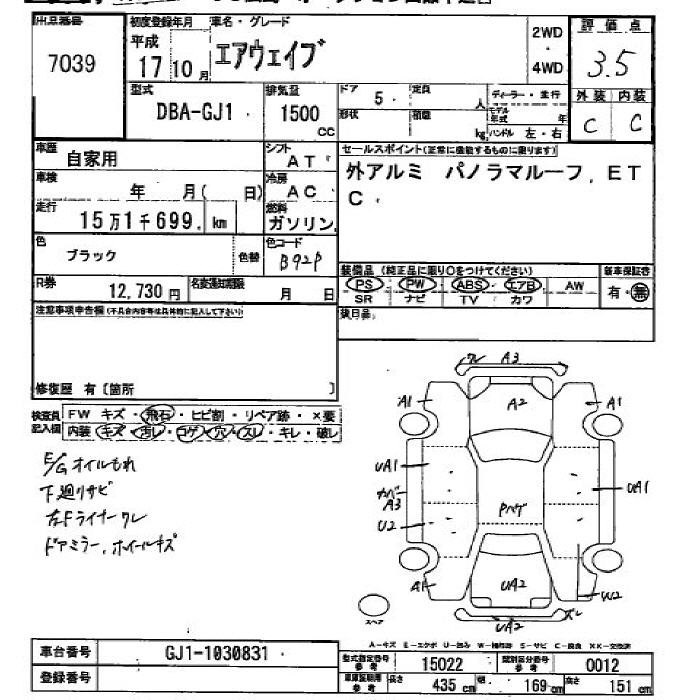 出品番号
7039
初度登録年月
平成
17 10月
車名・グレード
エアウェイブ
2WD
・
4WD
評価点
3.5
外装 内装
C C
型式
DBA-GJ1
排気量
1500
CC
ドア
5
定員
人
形状
積載
kg
ディーラー・並行
モデル年式
年
ハンドル 左・右
車歴
自家用
シフト
AT
セールスポイント(正常に機能するものに限ります)
外アルミ パノラマルーフ, ET
C
車検
年 月( 日)
冷房
AC
走行
15万1千699, km
燃料
ガソリン
色
ブラック
色替
色コード
B92P
装備品 (純正品に限り〇をつけてください)
PS PW ABS エアB AW
SR ナビ TV カワ
新車保証書
有・無
R券
12,730円
名変通知期限
月 日
後日品
注意事項申告欄(不具合内容等は具体的に記入して下さい)
修復歴 有〔箇所 〕
検査員記入欄
FW キズ・飛石・ヒビ割・リペア跡・×要
内装 キズ・汚レ・コゲ・穴・スレ・キレ・破レ
E/Gオイルもれ
下廻りサビ
左Fライナーワレ
ドアミラー,ホイールキズ
ワレ A3
A1 A2 A1
UA1
カバー
A3
U2
Pハゲ
UA1
A1 UA2 W2
UA2 ズレ
スペア
A-キズ E-エクボ U-凹み W-補修跡 S-サビ C-腐食 XX-交換済
車台番号
GJ1-1030831
登録番号
型式指定番号
参考
15022
類別区分番号
参考
0012
車庫証明用
参考
長さ
435 cm
幅
169 cm
高さ
151 cm